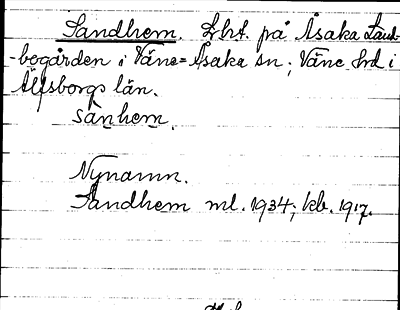 Sandhem. Lht. på Åsaka Land-
-bogården i Väne-Åsaka sn; Väne hd i
Älfsborgs län.
sànhem.
Nynamn.
Sandhem ml. 1934; kb. 1917.